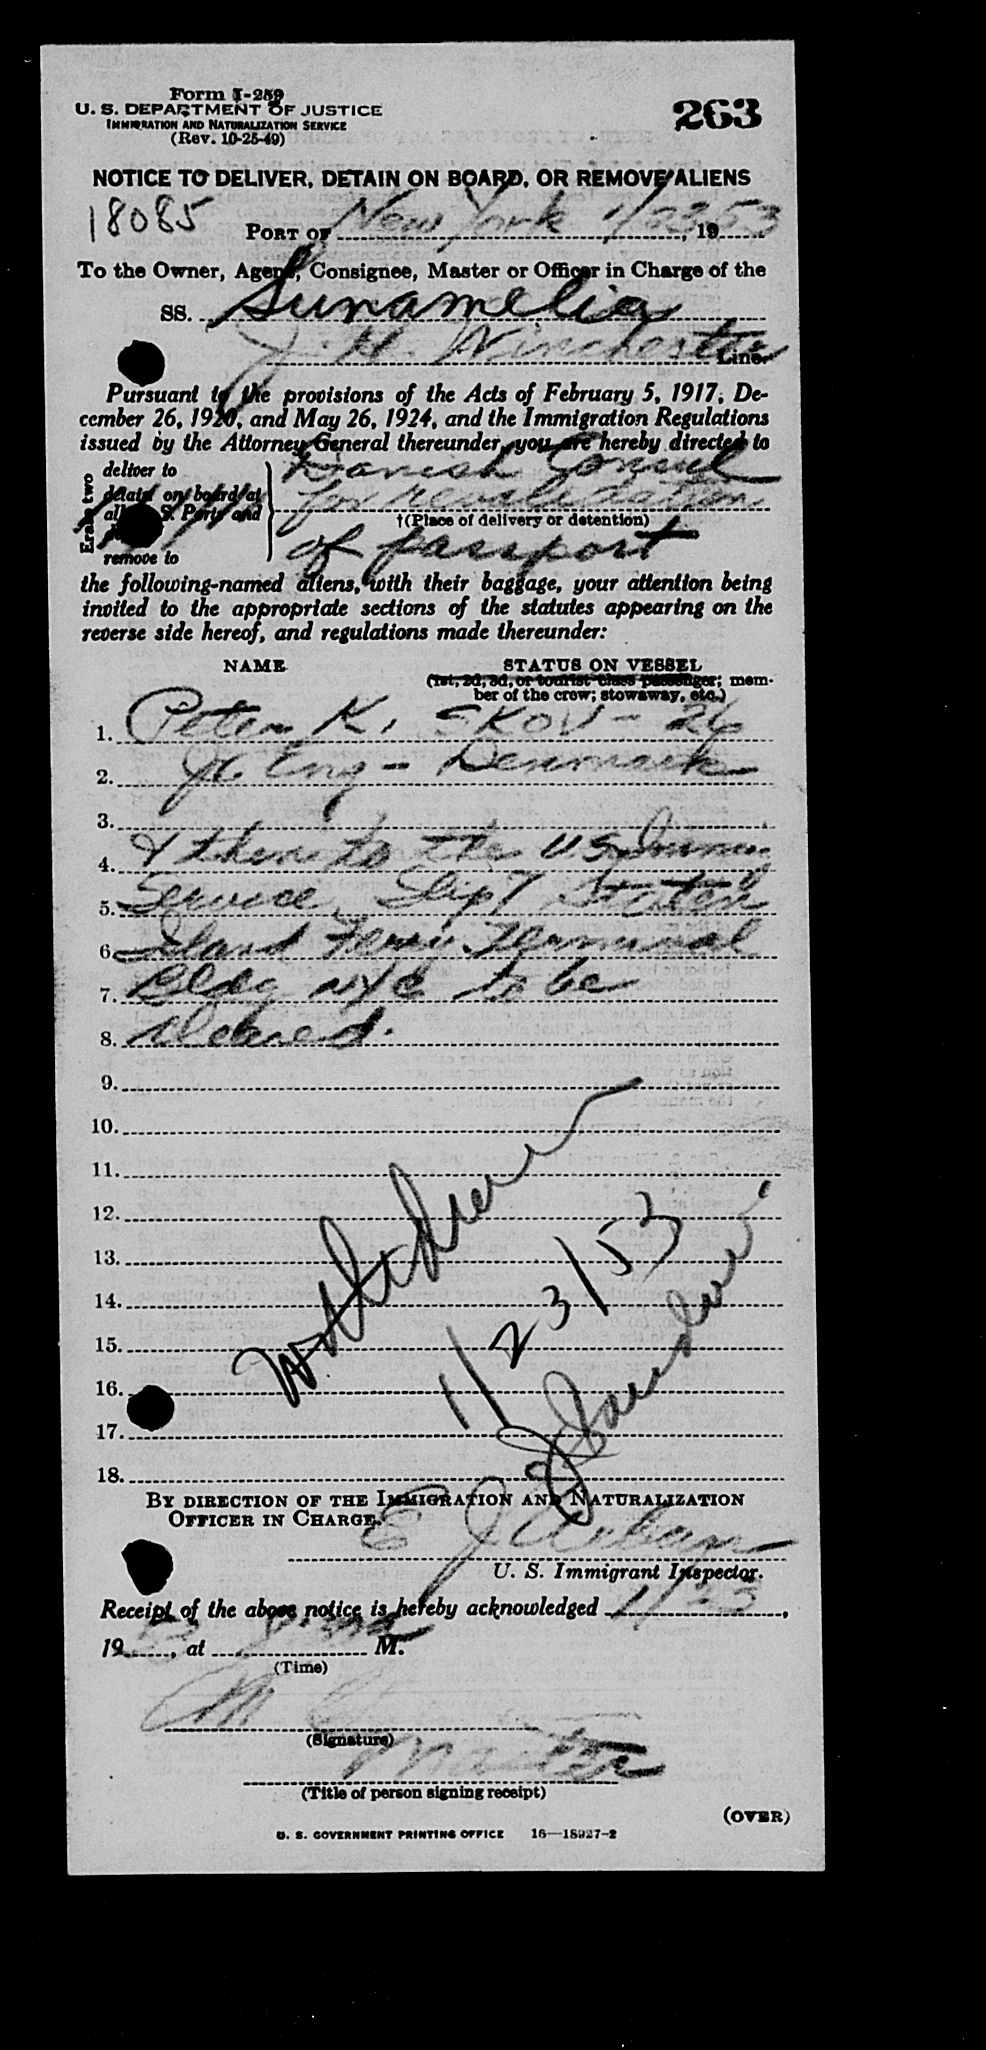 Form I-259
U. S. DEPARTMENT OF JUSTICE
IMMIGRATION AND NATURALIZATION SERVICE
(Rev. 10-25-49)
263
NOTICE TO DELIVER, DETAIN ON BOARD, OR REMOVE ALIENS
18085
PORT OF New York 1/23 53, 19
To the Owner, Agent, Consignee, Master or Officer in Charge of the
SS. Sunamelia
J. H. Winchester Line.
Pursuant to the provisions of the Acts of February 5, 1917, De-
cember 26, 1920, and May 26, 1924, and the Immigration Regulations
issued by the Attorney General thereunder, you are hereby directed to
Erase two
deliver to
detain on board at
all U. S. Ports and
remove to
Danish Consul
for revalidation
†(Place of delivery or detention)
of passport
the following-named aliens, with their baggage, your attention being
invited to the appropriate sections of the statutes appearing on the
reverse side hereof, and regulations made thereunder:
NAME
STATUS ON VESSEL
(1st, 2d, 3d, or tourist class passenger; mem-
ber of the crew; stowaway, etc.)
1. Peter K. SKOV - 26
2. Jr Eng - Denmark
3.
4. & then to the U.S. Immig
5. Service Slip 7 Staten
6. Island Ferry Terminal
7. Bldg NYC to be
8. cleared.
9.
10.
11.
12.
13.
14.
15.
16.
17.
18.
1/23/53
BY DIRECTION OF THE IMMIGRATION AND NATURALIZATION
OFFICER IN CHARGE.
E J
U. S. Immigrant Inspector.
Receipt of the above notice is hereby acknowledged 1/23,
19 53, at M.
(Time)
(Signature)
Master
(Title of person signing receipt)
(OVER)
U. S. GOVERNMENT PRINTING OFFICE 16—18927-2